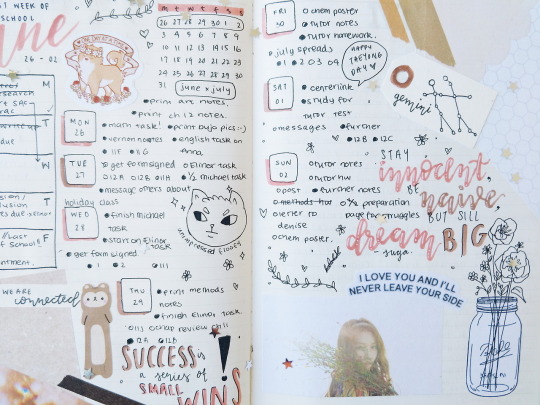 ST WEEK OF
SCHOOL
une
26 - 02
M
T
W
T
F
M T W T F S S
26 27 28 29 30 1 2
3 4 5 6 7 8 9
10 11 12 13 14 15 16
17 18 19 20 21 22 23
24 25 26 27 28 29 30
31
june x july
print art notes.
print ch 12 notes.
MON
26
math task!
print bujo pics :)
vernon notes
english task on
11F
8G
TUE
27
get form signed
Elinor task
12A
12B
11H
1/2 michael task
message others about
holiday class
WED
28
finish Michael
task
start on Elinor
task
get form signed
1
2
unimpressed floofs
WE ARE
connected
THU
29
print methods
notes
finish Elinor task
review ch 11
12A
12B
SUCCESS is
a series of
SMALL
WINS!
FRI
30
chem poster
tutor notes
tutor homework.
july spreads
1 2 03 04
HAPPY
TAEYONG
DAY
SAT
01
centerlink
study for
tutor test
messages
further
12B
12C
gemini
SUN
02
tutor notes
tutor hw
post
further notes
methods hw
preparation
denise
chem poster.
STAY
innocent,
BE
naive,
page for struggles
BUT SILL
dream BIG
- suga.
I LOVE YOU AND I'LL
NEVER LEAVE YOUR SIDE